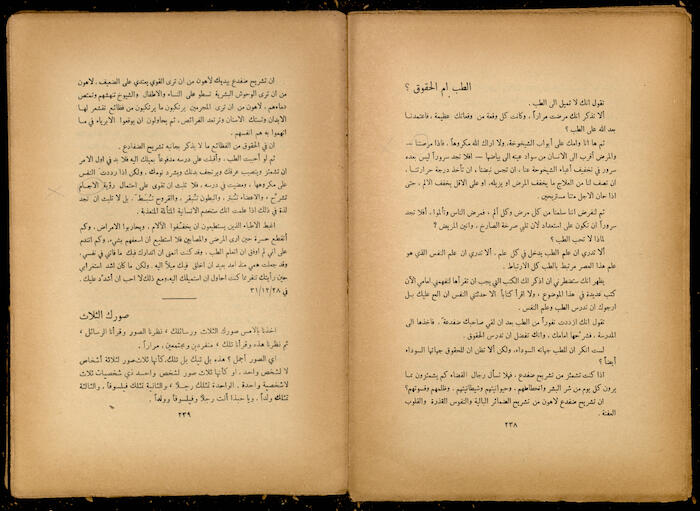 الطب ام الحقوق ؟
تقول انك لا تميل الى الطب .
ألا تذكر انك مرضت مراراً ، وكانت كل وقعة من وقعاتك عظيمة ، فاعتمدنا
بعد الله على الطب ؟
ثم ها انا وامك على أبواب الشيخوخة، ولا اراك الله مكروهاً، فاذا مرضنا —
والمرض أقرب الى الانسان من سواد عينه الى بياضها — أفلا تجد سروراً ليس بعده
سرور في تخفيف أعباء الشيخوخة عنا ، ان تجس نبضنا ، ان تأخذ درجة حرارتنا ،
ان تصف لنا من العلاج ما يخفف المرض او يزيله، او على الاقل يخفف الالم ، حتى
اذا حان الاجل متنا مستريحين .
ثم لنفرض اننا سلمنا من كل مرض وكل ألم ، فمرض الناس وتألموا ، أفلا تجد
سروراً ان تكون على استعداد لان تلبي صرخة الصارخ ، وانين المريض ؟
لماذا لا تحب الطب ؟
ألا تدري ان علم الطب يدخل في كل علم ، ألا تدري ان علم النفس الذي هو
علم هذا العصر مرتبط بالطب كل الارتباط .
يظهر انك ستضطرني ان اذكر لك الكتب التي يجب ان تقرأها لتفهمني امامي الآن
كتب عديدة في هذا الموضوع ، ولا اقرأ كتاباً الا حدثتني النفس ان الح عليك بل
ارجوك ان تدرس الطب وعلم النفس .
تقول انك ازددت نفوراً من الطب بعد ان لقي صاحبك ضفدعة ، فأخذها الى
المدرسة ، فشرّحها امامك ، وانك تفضل ان تدرس الحقوق .
لست انكر ان للطب جهاته السوداء، ولكن ألا تظن ان للحقوق جهاتها السوداء
أيضاً ؟
اذا كنت تشمئز من تشريح ضفدع ، فيلا نسأل رجال القضاء كم يشمئزون مما
يرون كل يوم من شر البشر وانحطاطهم ، وحيوانيتهم وشيطانيتهم ، وظلمهم وقسوتهم؟
ان تشريح ضفدع لاهون من تشريح الضمائر البالية والنفوس القذرة والقلوب
العفنة .
٢٣٨
ان تشريح ضفدع بيديك لاهون من ان ترى القوي يعتدي على الضعيف ، لاهون
من ان ترى الوحوش البشرية تسطو على النساء والاطفال والشيوخ تنهشهم وتمتص
دماءهم، لاهون من ان ترى المجرمين يرتكبون ما يرتكبون من فظائع تقشعر لها
الابدان وتستك الاسنان وترتعد الفرائص ، ثم يحاولون ان يوقعوا الابرياء في ما
اتهموا به هم انفسهم .
ان في الحقوق من الفظائع ما لا يذكر بجانبه تشريح الضفادع .
ثم لو أحببت الطب ، وأقبلت على درسه مدفوعاً بميلك اليه فلا بد في اول الامر
ان تشمئز ويتصبب عرقك ويرتجف بدنك ويشرد نومك ، ولكن اذا رددت النفس
على مكروهها ، ومضيت في درسه ، فلا تلبث ان تقوى على احتمال رؤية الاجسام
تشرّح ، والاعضاء تُبتر ، والبطون تُبقر ، والقروح تُبسط ، بل لا تلبث ان تجد
لذة في ذلك اذا علمت انك ستخدم الانسانية المتألمة المتعذبة .
اغبط الاطباء الذين يستطيعون ان يخففوا الآلام ، ويحاربوا الامراض ، وكم
أتقطع حسرة حين ارى المرضى والمصابين فلا استطيع ان اسعفهم بشيء، وكم اتندم
على اني لم اوفق ان اتعلم الطب ، وقد كنت اتمنى ان اتدارك فيك ما فاتني في نفسي،
وقد جعلت همي منذ امد بعيد ان اخلق فيك ميلاً اليه. ولكن ما كان اشد استغرابي
حين رأيتك تنفر كلما كنت احاول ان استميلك اليه، ومع ذلك لا احب ان أشدّ عليك .
في ٢٨/١٢/٣١
صورك الثلاث
اخذنا بالامس صورك الثلاث ورسائلك ، نظرنا الصور وقرأنا الرسائل ،
ثم نظرنا هذه وقرأنا تلك ، منفردين ومجتمعين ، مراراً .
اي الصور أجمل ؟ هذه بل تيك بل تلك، كأنها ثلاث صور لثلاثة أشخاص
لا لشخص واحد . او كأنها ثلاث صور لشخص واحد ذي شخصيات ثلاث
لا شخصية واحدة ، الواحدة تمثلك رجلاً ، والثانية تمثلك فيلسوفاً ، والثالثة
تمثلك ولداً . ويا حبذا أنت رجلاً وفيلسوفاً وولداً .
٢٣٩